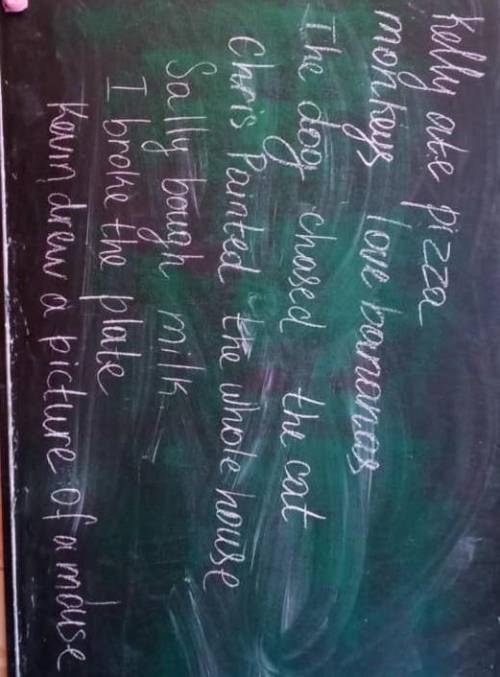 Kelly ate pizza
monkeys love bananas
The dog chased the cat
Chris Painted the whole house
Sally bough milk
I broke the plate
Kevin drew a picture of a mouse